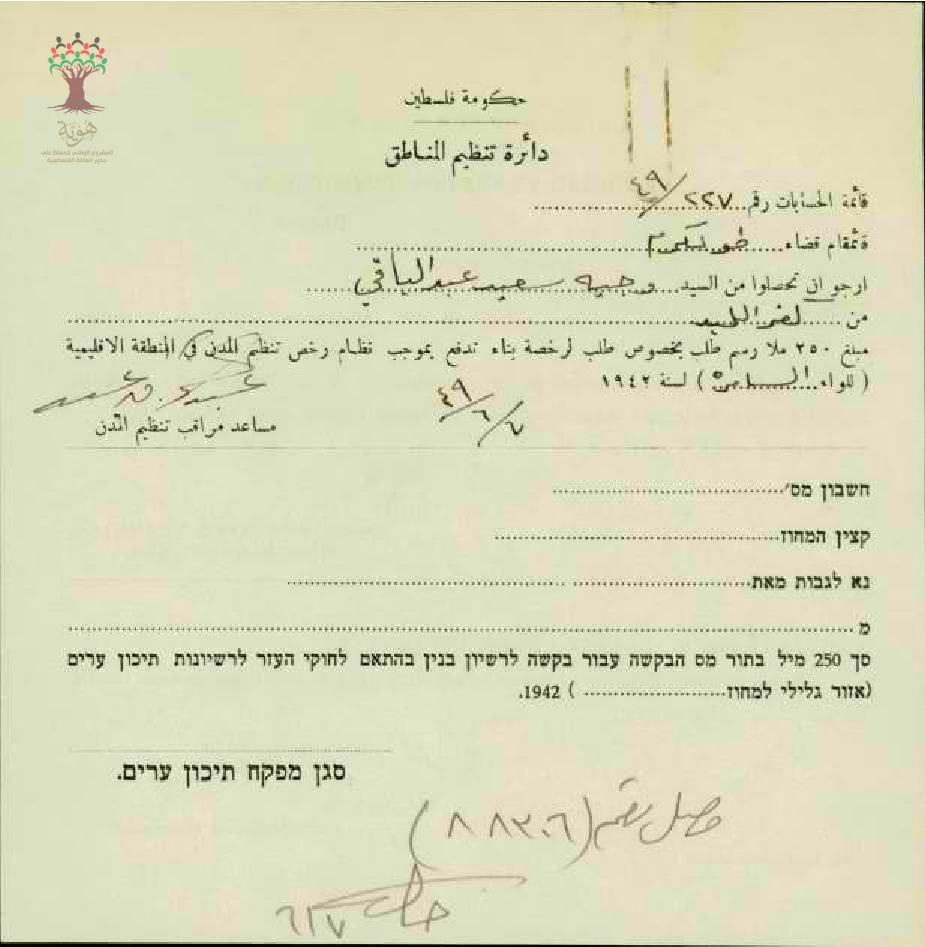 هُويّة
المشروع الوطني للحفاظ على
جذور العائلة الفلسطينية
حكومة فلسطين
دائرة تنظيم المناطق
قائمة الحسابات رقم ٢٢٧/٤٩
قائمقام قضاء طولكرم
ارجو ان تحصلوا من السيد وجيه سعيد عبد الباقي
من
مبلغ ٢٥٠ ملا رسم طلب بخصوص طلب لرخصة بناء تدفع بموجب نظام رخص تنظيم المدن في المنطقة الاقليمية
( للواء السامرة ) لسنة ١٩٤٢
مساعد مراقب تنظيم المدن
חשבון מס'
קצין המחוז
נא לגבות מאת
מ
סך 250 מיל בתור מס הבקשה עבור בקשה לרשיון בנין בהתאם לחוקי העזר לרשיונות תיכון ערים
(אזור גלילי למחוז ) 1942.
סגן מפקח תיכון ערים.
وصل رقم (٨٨٣٠٦)